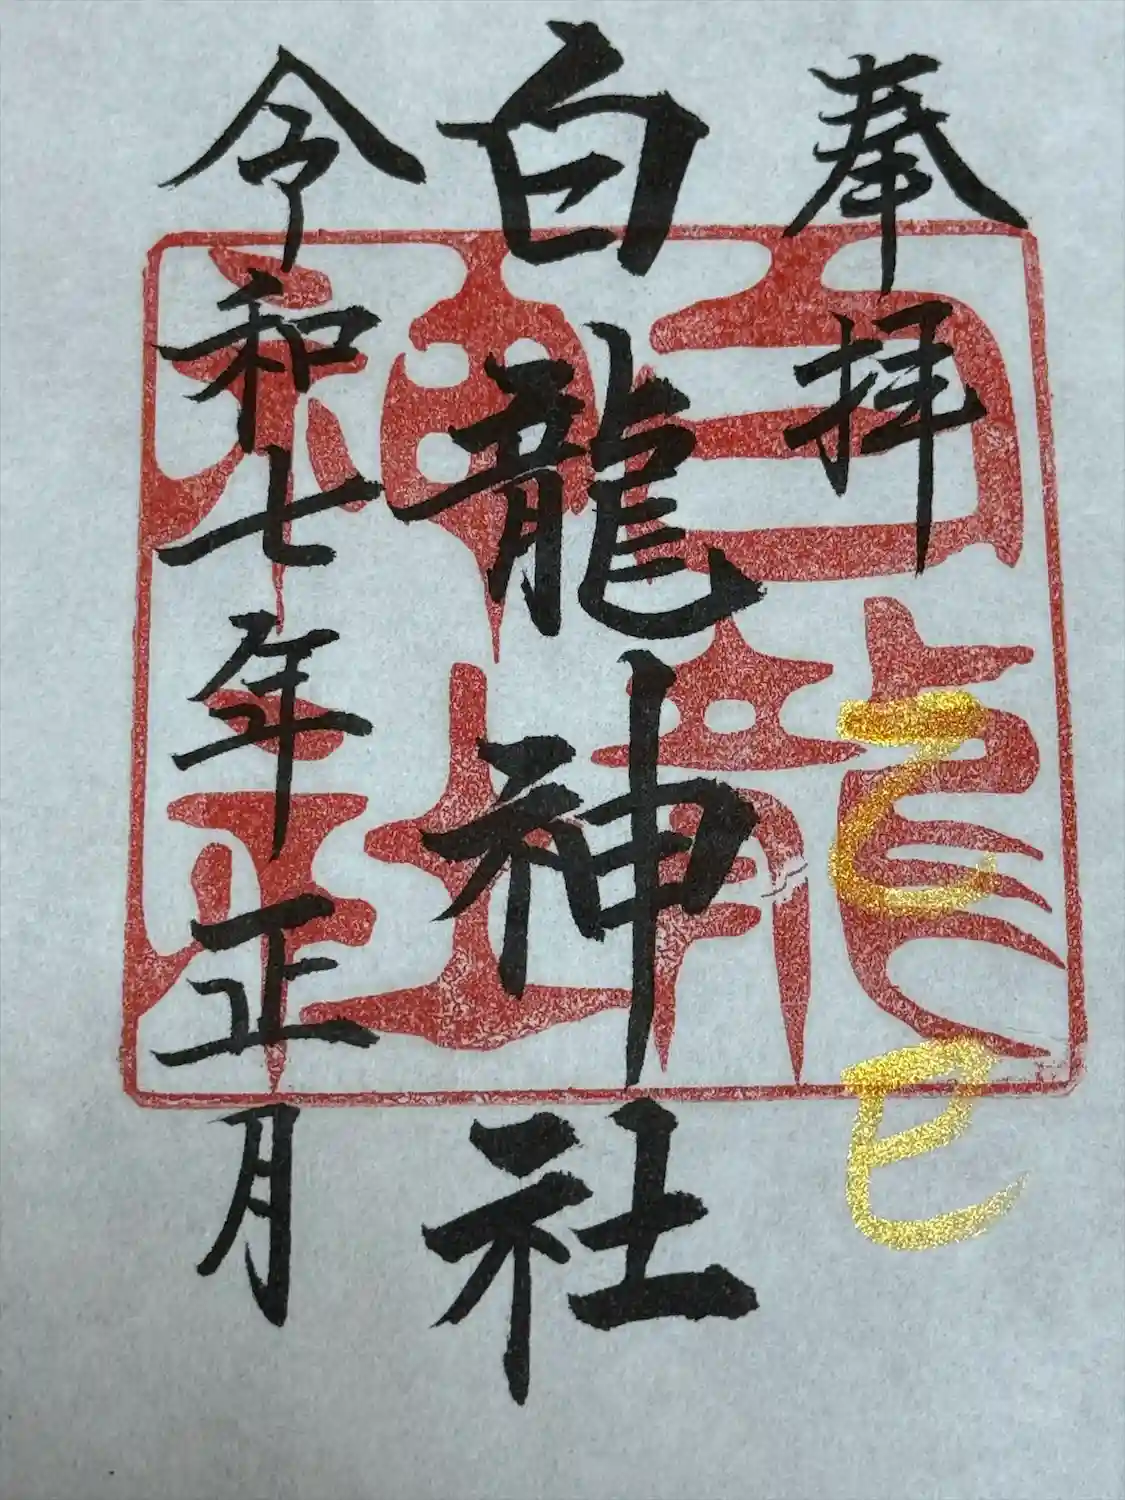 奉拝
乙巳
白龍神社
令和七年正月